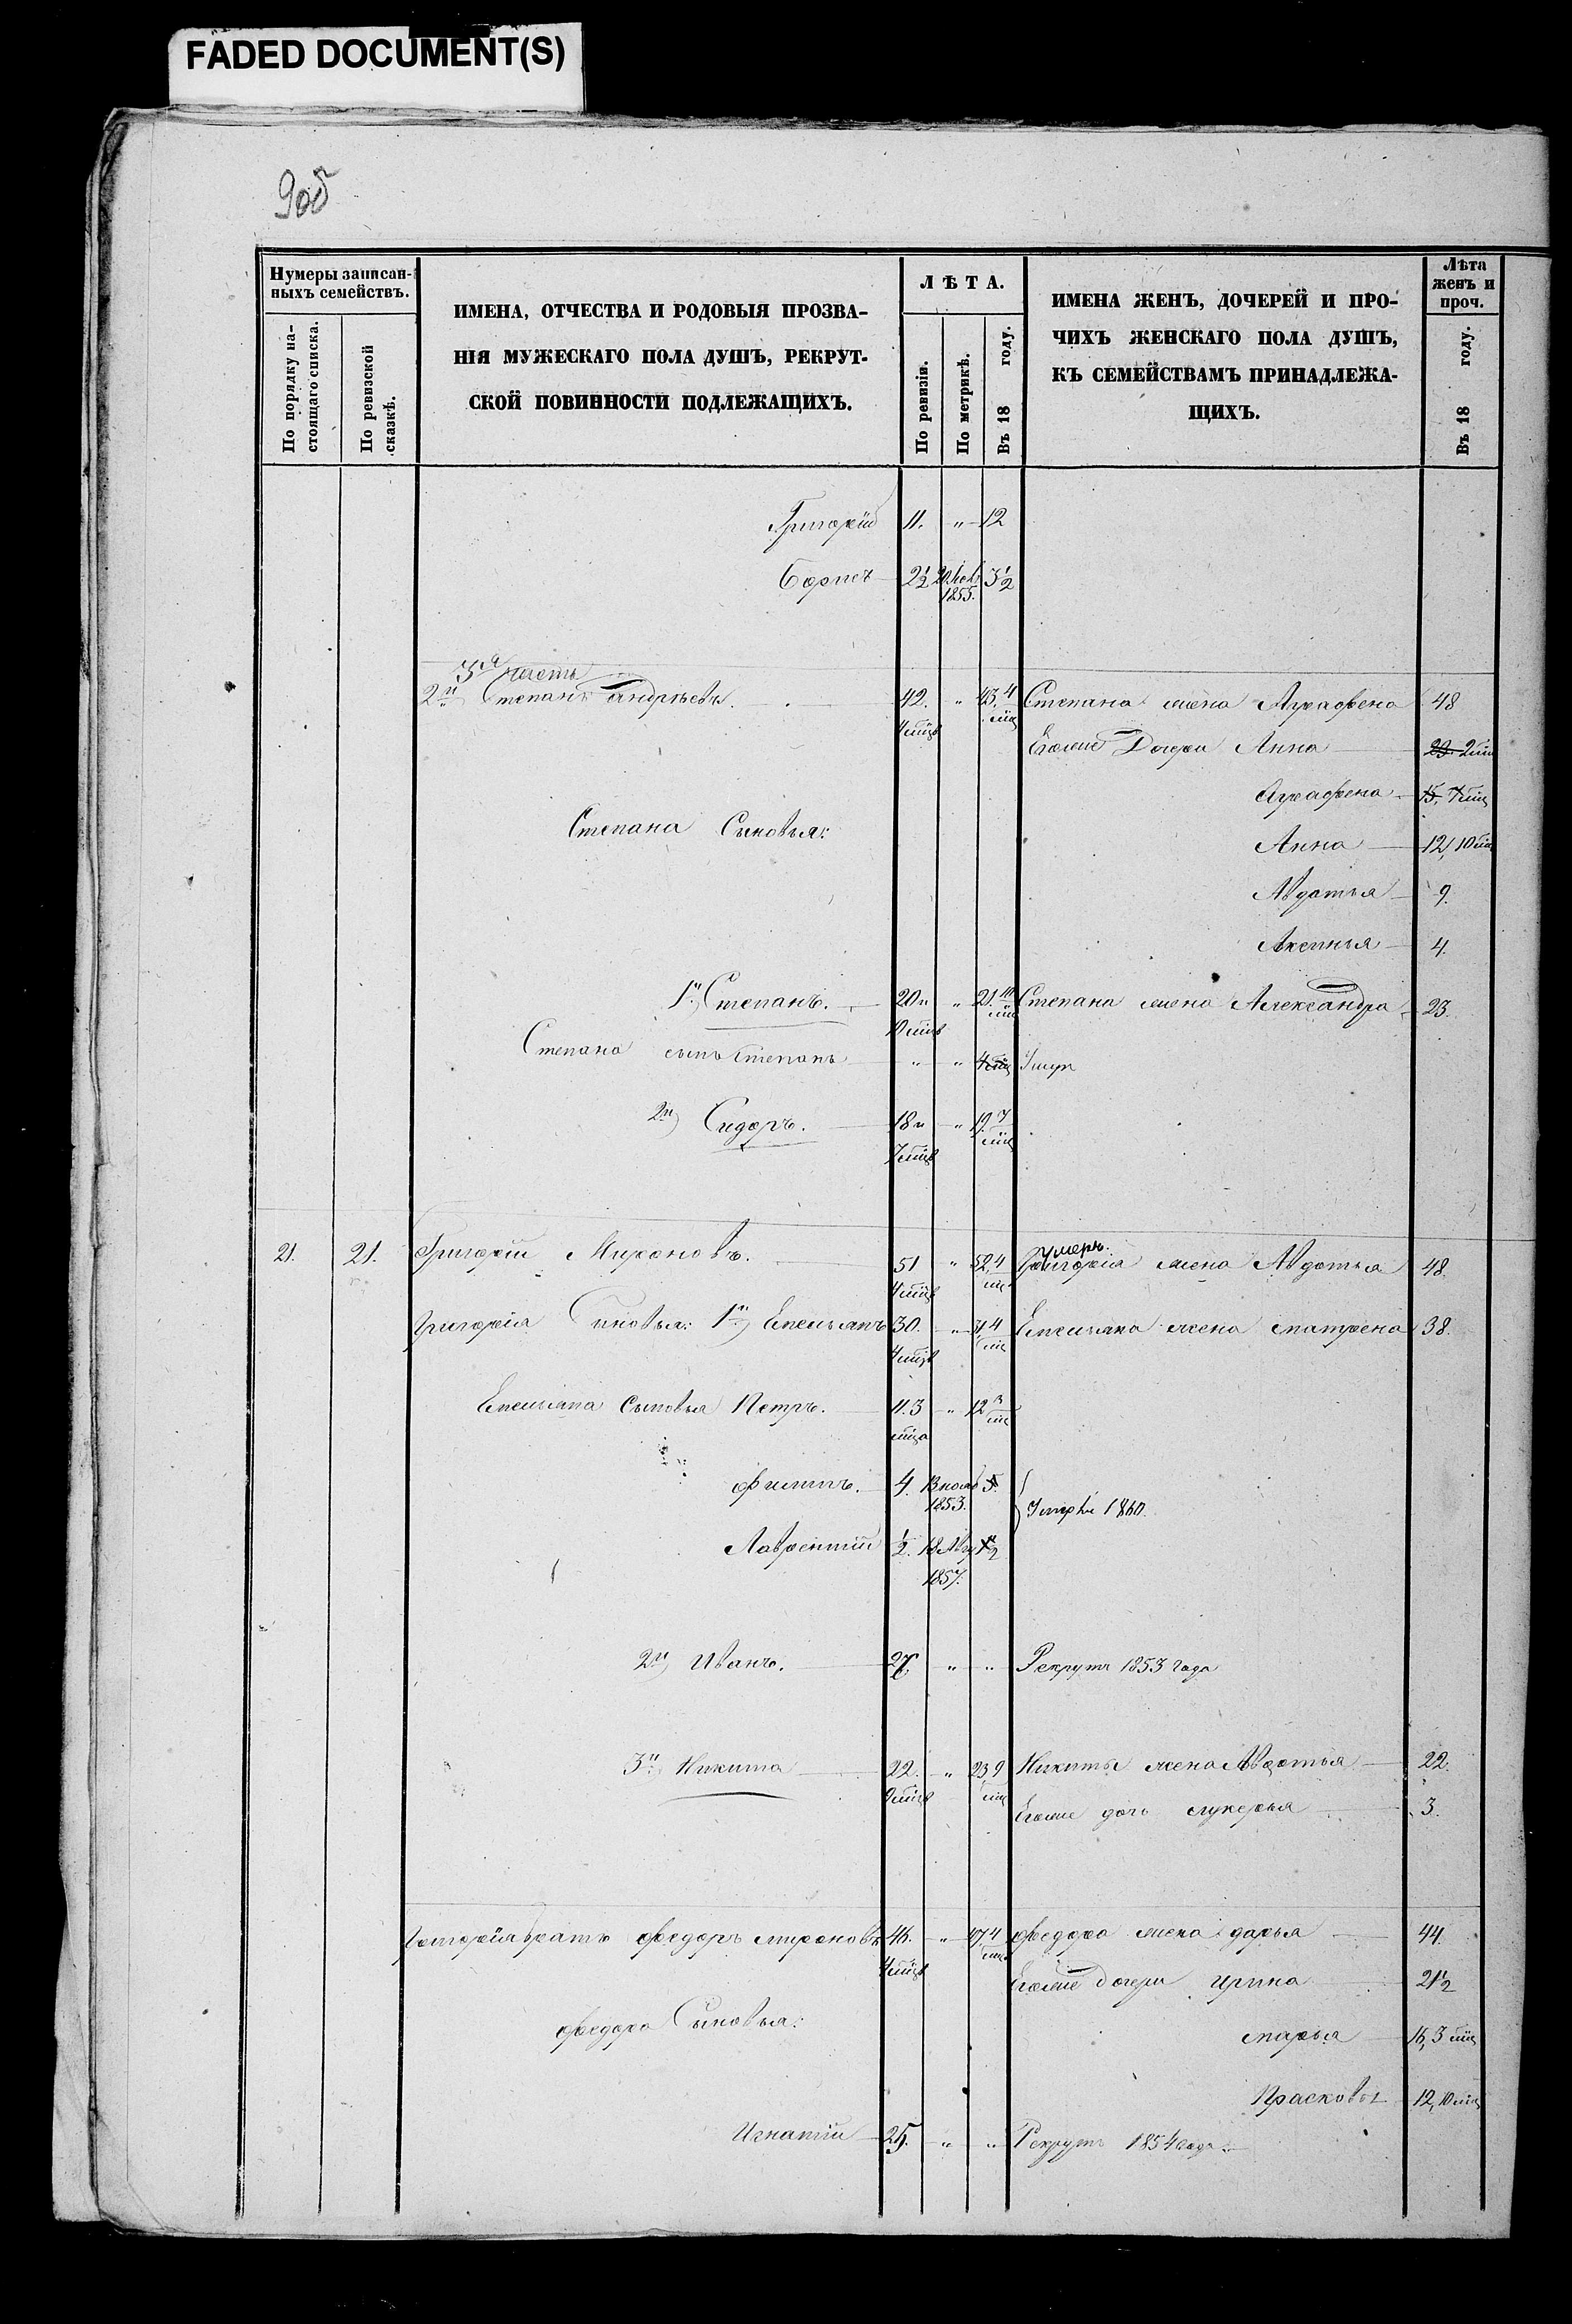 FADED DOCUMENT(S)
90об
Нумеры записан-
ныхъ семействъ.
По порядку на-
стоящаго списка.
По ревизской
сказкѣ.
ИМЕНА, ОТЧЕСТВА И РОДОВЫЯ ПРОЗВА-
НІЯ МУЖЕСКАГО ПОЛА ДУШЪ, РЕКРУТ-
СКОЙ ПОВИННОСТИ ПОДЛЕЖАЩИХЪ.
ЛѢТА.
По ревизіи.
По метрикѣ.
Въ 18 году.
ИМЕНА ЖЕНЪ, ДОЧЕРЕЙ И ПРО-
ЧИХЪ ЖЕНСКАГО ПОЛА ДУШЪ,
КЪ СЕМЕЙСТВАМЪ ПРИНАДЛЕЖА-
ЩИХЪ.
Лѣта
женъ и
проч.
Въ 18 году.
Григорій 11. " 12
Борисъ 2½ 20 1855. 3½
3я часть
2й Степанъ Андрѣевъ. 42. 4 мцв " 43, 4 мц Степана жена Аграфена 48
Егоже Дочери Анна 23. 2 мц
Аграфена 15, 7 мц
Степана Сыновья:
Анна 12, 10 мц
Авдотья 9.
Аксинья 4.
1й) Степанъ. 20 " 10 мцв " 21. 10 мц Степана жена Александра 23.
Степана сынъ Степанъ " " 4 мц Умеръ
2й) Сидоръ. 18 " 7 мцв " 19. 7 мц
21. 21. Григорій Мироновъ. 51 4 мцв " 52, 4 мц умеръ. Григорія жена Авдотья 48.
Григорія Сыновья: 1й) Емельянъ 30. 4 мцв " 31, 4 мц Емельяна жена Матрена 38.
Емельяна Сыновья Петръ. 11. 3 мца " 12 3 мц
Филипъ. 4. 13 нояб 1853. 5.
Умерли 1860.
Лаврентій ½. 18 Авг 1857. 1½
2й) Иванъ. 27. " " Рекрутъ 1853 года
3й Никита 22. 9 мцв " 23 9 мц Никиты жена Авдотья 22.
Егоже дочь Лукерья 3.
Григорія братъ Федоръ Мироновъ 46. 4 мцв " 47, 4 мц Федора жена Дарья 44.
Егоже дочери Ирина 21½
Федора Сыновья:
Марья 16, 3 мц
Прасковья 12, 10 мц
Игнатій 25. " " Рекрутъ 1854 года.